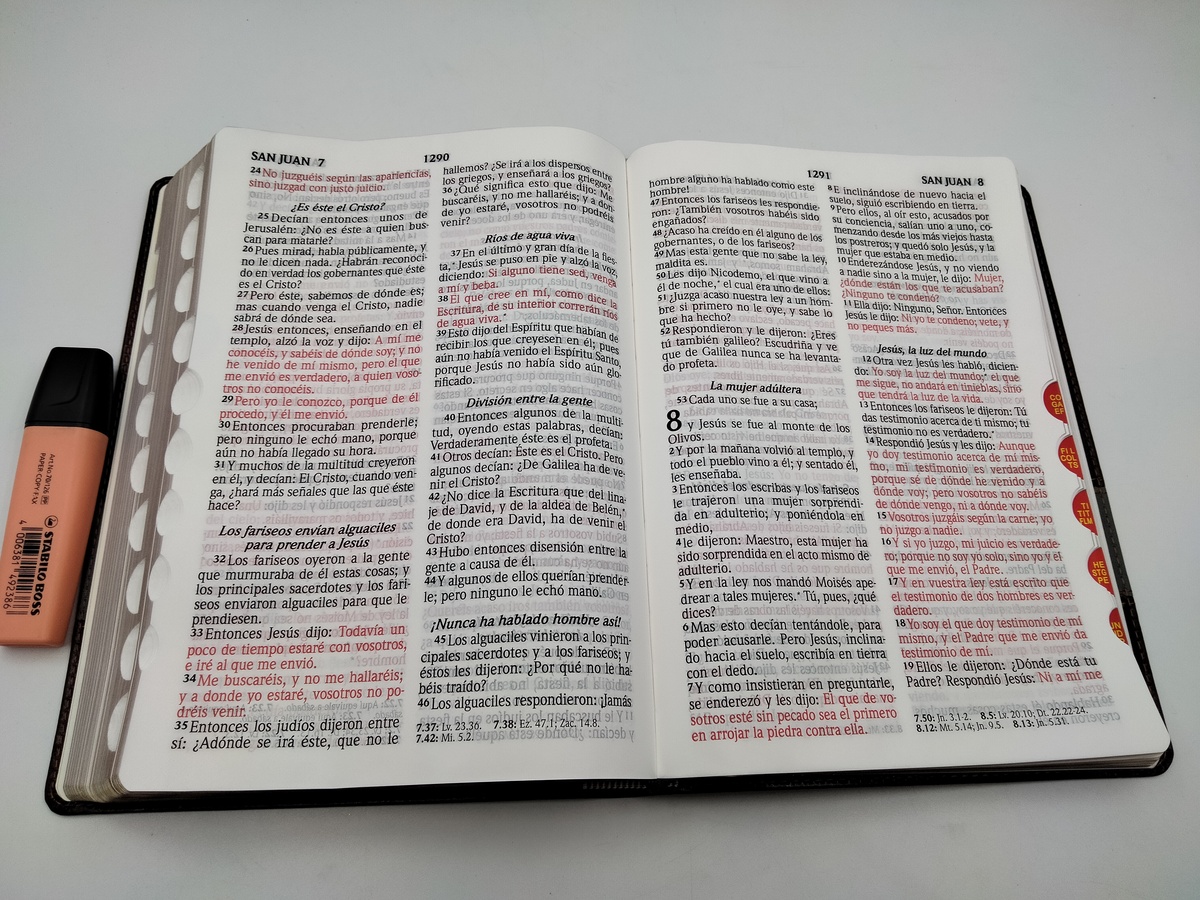 SAN JUAN 7
1290
24 No juzguéis según las apariencias,
sino juzgad con justo juicio.
¿Es éste el Cristo?
25 Decían entonces unos de
Jerusalén: ¿No es éste a quien bus-
can para matarle?
26 Pues mirad, habla públicamente, y
no le dicen nada. ¿Habrán reconoci-
do en verdad los gobernantes que éste
es el Cristo?
27 Pero éste, sabemos de dónde es;
mas cuando venga el Cristo, nadie
sabrá de dónde sea.
28 Jesús entonces, enseñando en el
templo, alzó la voz y dijo: A mí me
conocéis, y sabéis de dónde soy; y no
he venido de mí mismo, pero el que
me envió es verdadero, a quien voso-
tros no conocéis.
29 Pero yo le conozco, porque de él
procedo, y él me envió.
30 Entonces procuraban prenderle;
pero ninguno le echó mano, porque
aún no había llegado su hora.
31 Y muchos de la multitud creyeron
en él, y decían: El Cristo, cuando ven-
ga, ¿hará más señales que las que éste
hace?
Los fariseos envían alguaciles
para prender a Jesús
32 Los fariseos oyeron a la gente
que murmuraba de él estas cosas; y
los principales sacerdotes y los fari-
seos enviaron alguaciles para que le
prendiesen.
33 Entonces Jesús dijo: Todavía un
poco de tiempo estaré con vosotros,
e iré al que me envió.
34 Me buscaréis, y no me hallaréis;
y a donde yo estaré, vosotros no po-
dréis venir.
35 Entonces los judíos dijeron entre
sí: ¿Adónde se irá éste, que no le
hallemos? ¿Se irá a los dispersos entre
los griegos, y enseñará a los griegos?
36 ¿Qué significa esto que dijo: Me
buscaréis, y no me hallaréis; y a don-
de yo estaré, vosotros no podréis
venir?
Ríos de agua viva
37 En el último y gran día de la fies-
ta,* Jesús se puso en pie y alzó la voz,
diciendo: Si alguno tiene sed, venga
a mí y beba.
38 El que cree en mí, como dice la
Escritura, de su interior correrán ríos
de agua viva.*
39 Esto dijo del Espíritu que habían de
recibir los que creyesen en él; pues
aún no había venido el Espíritu Santo,
porque Jesús no había sido aún glo-
rificado.
División entre la gente
40 Entonces algunos de la multi-
tud, oyendo estas palabras, decían:
Verdaderamente éste es el profeta.
41 Otros decían: Éste es el Cristo. Pero
algunos decían: ¿De Galilea ha de ve-
nir el Cristo?
42 ¿No dice la Escritura que del lina-
je de David, y de la aldea de Belén,*
de donde era David, ha de venir el
Cristo?
43 Hubo entonces disensión entre la
gente a causa de él.
44 Y algunos de ellos querían prender-
le; pero ninguno le echó mano.
¡Nunca ha hablado hombre así!
45 Los alguaciles vinieron a los prin-
cipales sacerdotes y a los fariseos; y
éstos les dijeron: ¿Por qué no le ha-
béis traído?
46 Los alguaciles respondieron: ¡Jamás
7.37: Lv. 23.36. 7.38: Ez. 47.1; Zac. 14.8.
7.42: Mi. 5.2.
1291
SAN JUAN 8
hombre alguno ha hablado como este
hombre!
47 Entonces los fariseos les respondie-
ron: ¿También vosotros habéis sido
engañados?
48 ¿Acaso ha creído en él alguno de los
gobernantes, o de los fariseos?
49 Mas esta gente que no sabe la ley,
maldita es.
50 Les dijo Nicodemo, el que vino a
él de noche,* el cual era uno de ellos:
51 ¿Juzga acaso nuestra ley a un hom-
bre si primero no le oye, y sabe lo
que ha hecho?
52 Respondieron y le dijeron: ¿Eres
tú también galileo? Escudriña y ve
que de Galilea nunca se ha levanta-
do profeta.
La mujer adúltera
53 Cada uno se fue a su casa;
8
y Jesús se fue al monte de los
Olivos.
2 Y por la mañana volvió al templo, y
todo el pueblo vino a él; y sentado él,
les enseñaba.
3 Entonces los escribas y los fariseos
le trajeron una mujer sorprendi-
da en adulterio; y poniéndola en
medio,
4 le dijeron: Maestro, esta mujer ha
sido sorprendida en el acto mismo de
adulterio.
5 Y en la ley nos mandó Moisés ape-
drear a tales mujeres.* Tú, pues, ¿qué
dices?
6 Mas esto decían tentándole, para
poder acusarle. Pero Jesús, inclina-
do hacia el suelo, escribía en tierra
con el dedo.
7 Y como insistieran en preguntarle,
se enderezó y les dijo: El que de vo-
sotros esté sin pecado sea el primero
en arrojar la piedra contra ella.
8 E inclinándose de nuevo hacia el
suelo, siguió escribiendo en tierra.
9 Pero ellos, al oír esto, acusados por
su conciencia, salían uno a uno, co-
menzando desde los más viejos hasta
los postreros; y quedó solo Jesús, y la
mujer que estaba en medio.
10 Enderezándose Jesús, y no viendo
a nadie sino a la mujer, le dijo: Mujer,
¿dónde están los que te acusaban?
¿Ninguno te condenó?
11 Ella dijo: Ninguno, Señor. Entonces
Jesús le dijo: Ni yo te condeno; vete, y
no peques más.
Jesús, la luz del mundo
12 Otra vez Jesús les habló, dicien-
do: Yo soy la luz del mundo;* el que
me sigue, no andará en tinieblas, sino
que tendrá la luz de la vida.
13 Entonces los fariseos le dijeron: Tú
das testimonio acerca de ti mismo; tu
testimonio no es verdadero.*
14 Respondió Jesús y les dijo: Aunque
yo doy testimonio acerca de mí mis-
mo, mi testimonio es verdadero,
porque sé de dónde he venido y a
dónde voy; pero vosotros no sabéis
de dónde vengo, ni a dónde voy.
15 Vosotros juzgáis según la carne; yo
no juzgo a nadie.
16 Y si yo juzgo, mi juicio es verdade-
ro; porque no soy yo solo, sino yo y el
que me envió, el Padre.
17 Y en vuestra ley está escrito que
el testimonio de dos hombres es ver-
dadero.
18 Yo soy el que doy testimonio de mí
mismo, y el Padre que me envió da
testimonio de mí.
19 Ellos le dijeron: ¿Dónde está tu
Padre? Respondió Jesús: Ni a mí me
7.50: Jn. 3.1-2. 8.5: Lv. 20.10; Dt. 22.22-24.
8.12: Mt. 5.14; Jn. 9.5. 8.13: Jn. 5.31.
CO
GA
EF
FIL
COL
TS
TI
TIT
FLM
HE
STG
PE
JN
JD
STABILO BOSS
Art.No.70/126
PAPER COPY FAX
4 006381 492386